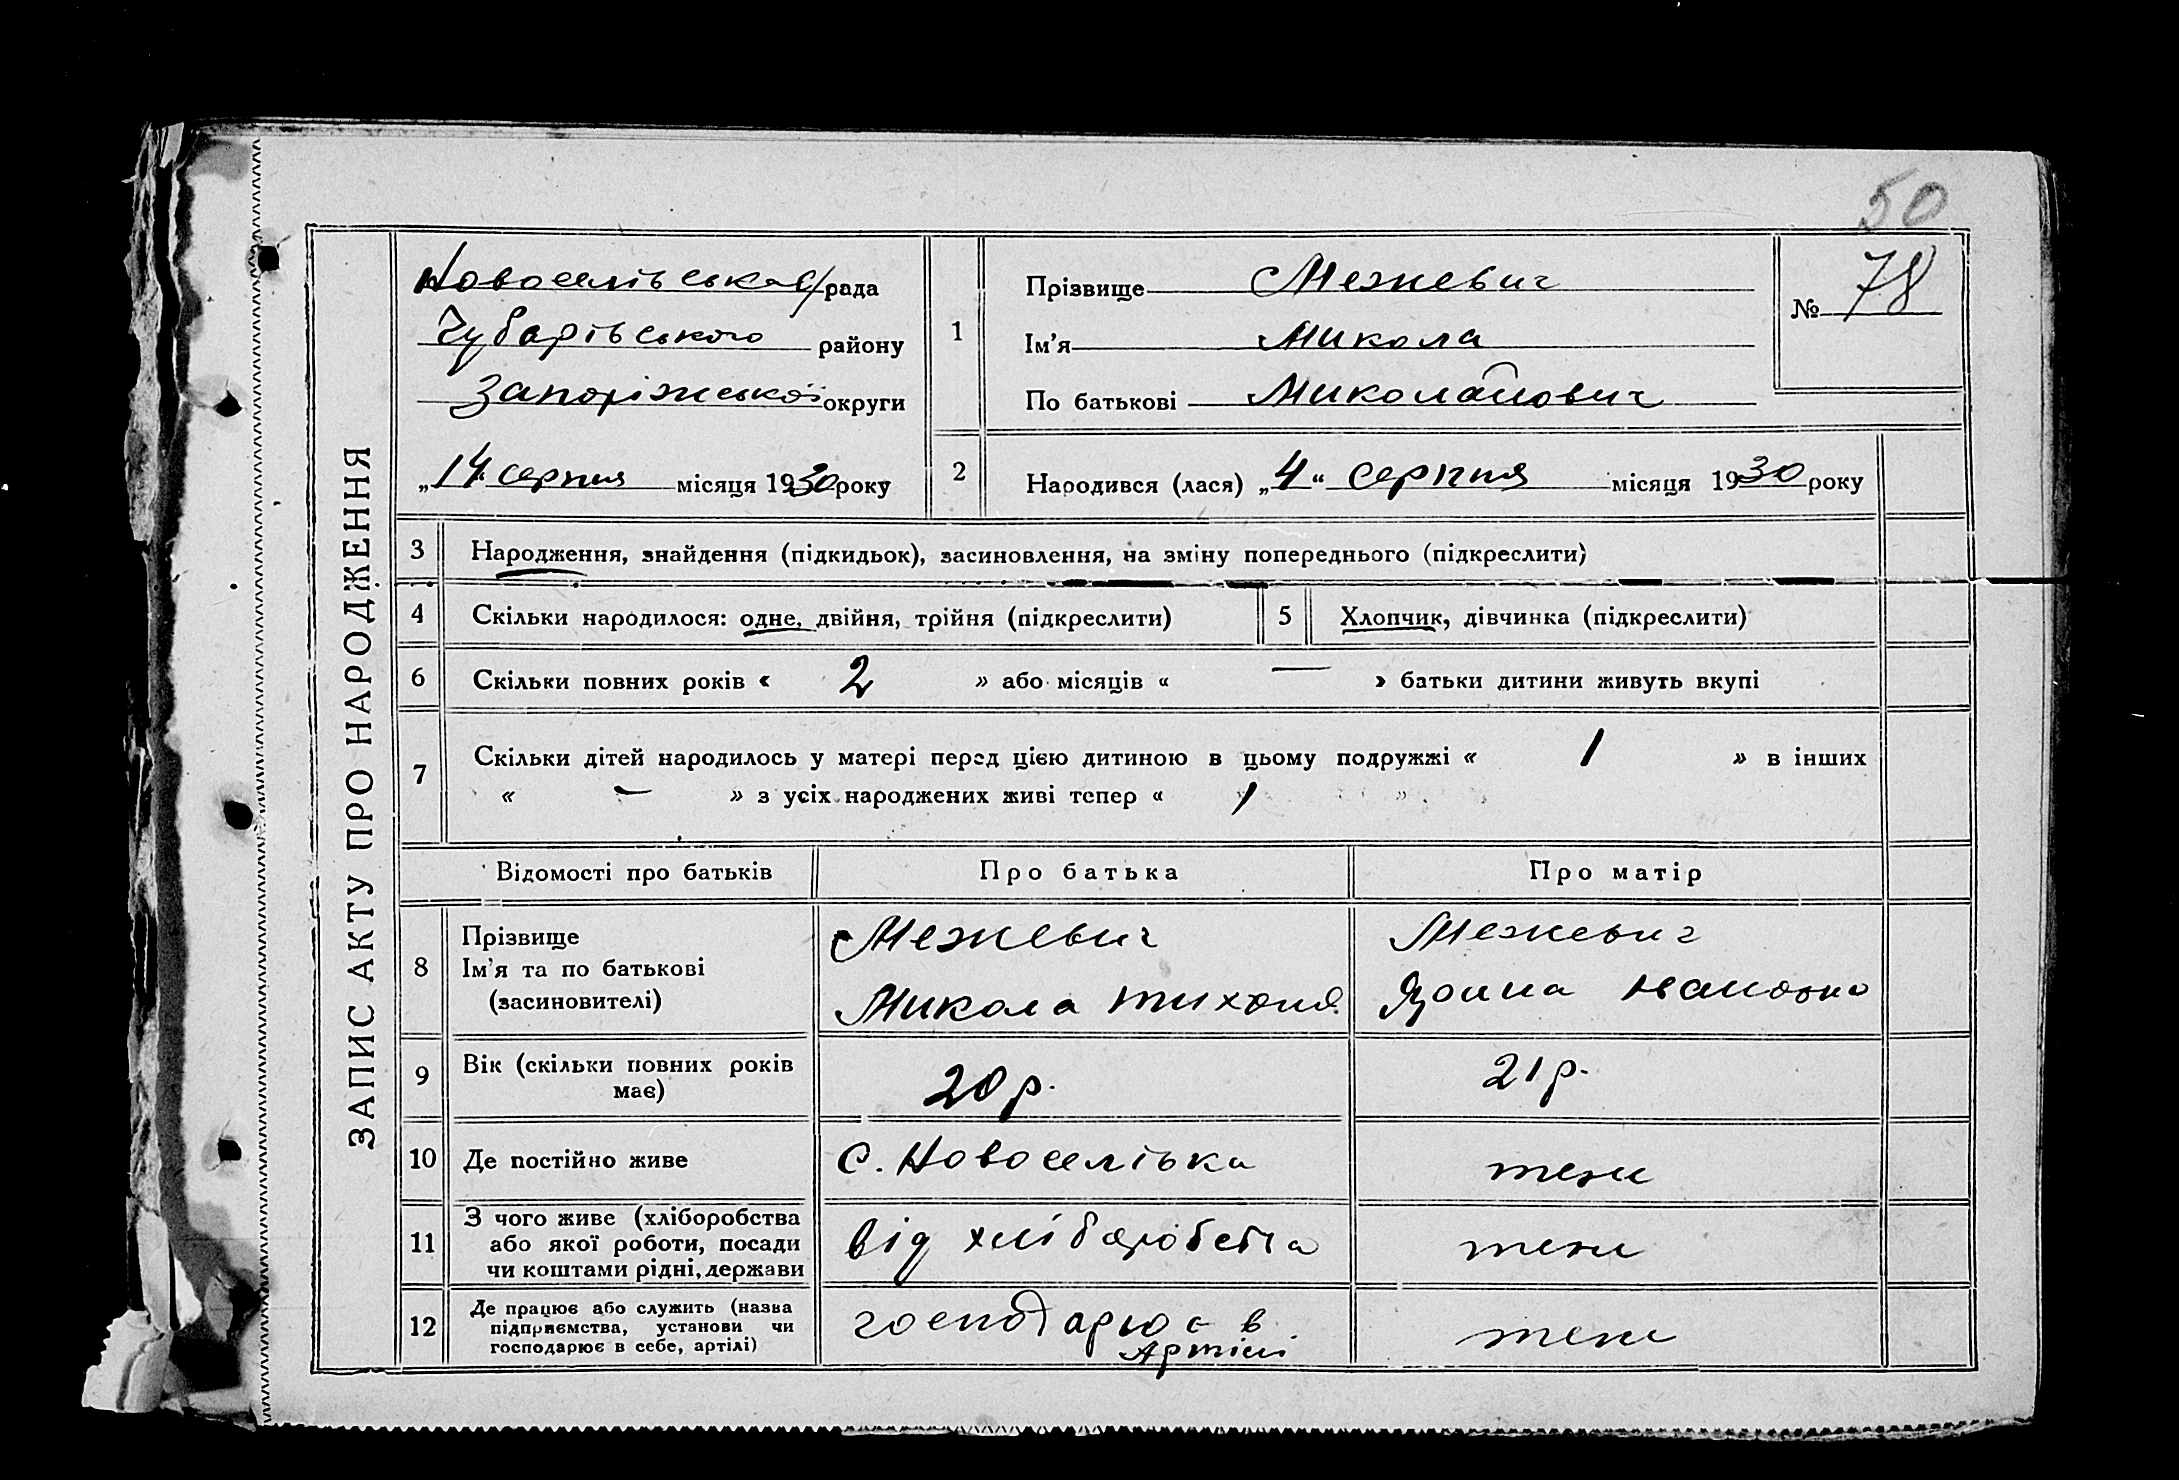 50
ЗАПИС АКТУ ПРО НАРОДЖЕННЯ
Новоселівська с/рада
Чубарівського району
Запоріжської округи
„14 серпня місяця 1930 року
1
Прізвище Межевич
Ім’я Микола
По батькові Миколайович
№ 78
2 Народився (лася) „4“ серпня місяця 1930 року
3 Народження, знайдення (підкидьок), засиновлення, на зміну попереднього (підкреслити)
4 Скільки народилося: одне, двійня, трійня (підкреслити) 5 Хлопчик, дівчинка (підкреслити)
6 Скільки повних років « 2 » або місяців « — » батьки дитини живуть вкупі
7 Скільки дітей народилось у матері перед цією дитиною в цьому подружжі « 1 » в інших
« — » з усіх народжених живі тепер « 1 »
Відомості про батьків Про батька Про матір
8 Прізвище
Ім’я та по батькові
(засиновителі)
Межевич
Микола Тихон.
Межевич
Ивановна
9 Вік (скільки повних років
має)
20 р. 21 р.
10 Де постійно живе с. Новоселівка теж
11 З чого живе (хліборобства
або якої роботи, посади
чи коштами рідні, держави
від хліборобства теж
12 Де працює або служить (назва
підприємства, установи чи
господарює в себе, артілі)
господарює в
Артілі
теж